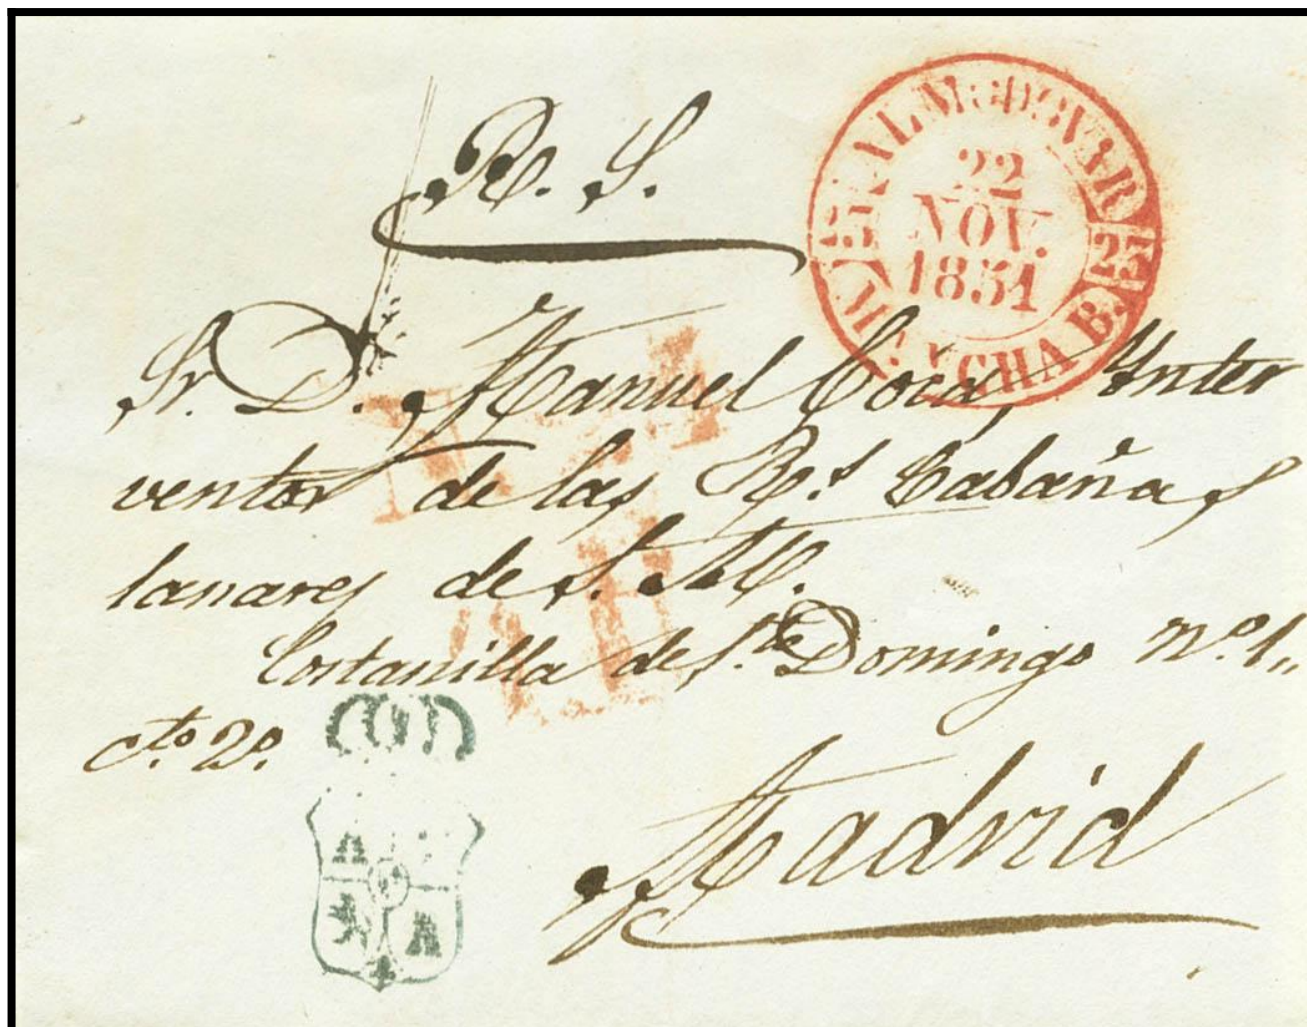 R. S.
22
NOV.
1851
25
Sr. D. Manuel Coca, Ynter
ventor de las Rs. Cabañas
lanares de S. M.
Costanilla de Sto. Domingo No. 1,,
cto. 2o.
Madrid